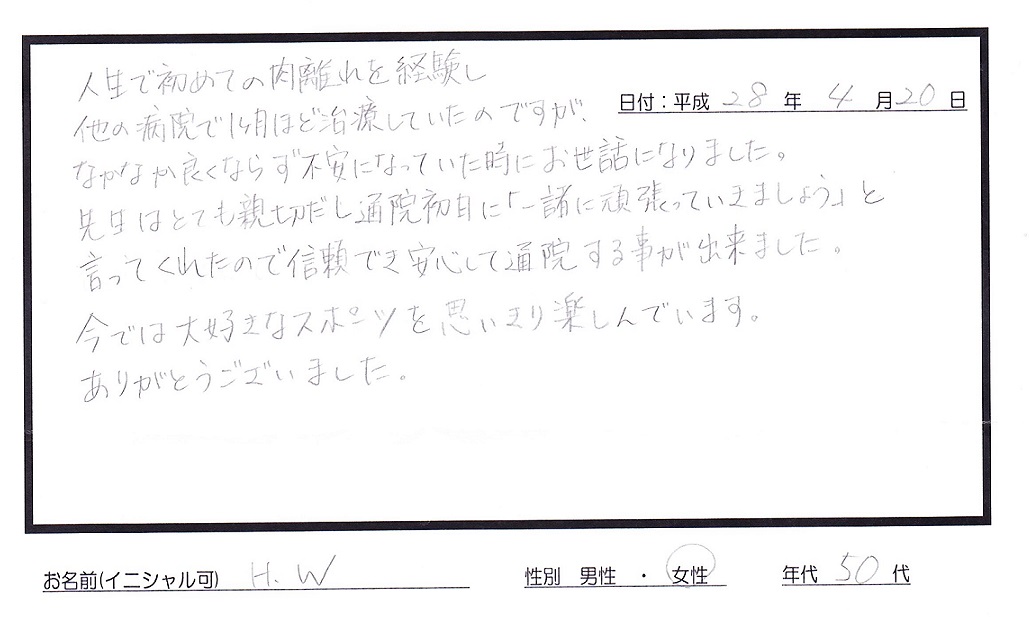 人生で初めての肉離れを経験し
日付：平成 28 年 4 月 20 日
他の病院で1ヶ月ほど治療していたのですが、
なかなか良くならず不安になっていた時にお世話になりました。
先生はとても親切だし通院初日に「一諸に頑張っていきましょう」と
言ってくれたので信頼でき安心して通院する事が出来ました。
今では大好きなスポーツを思いきり楽しんでいます。
ありがとうございました。
お名前(イニシャル可) H.W 性別 男性 ・ 女性 年代 50 代